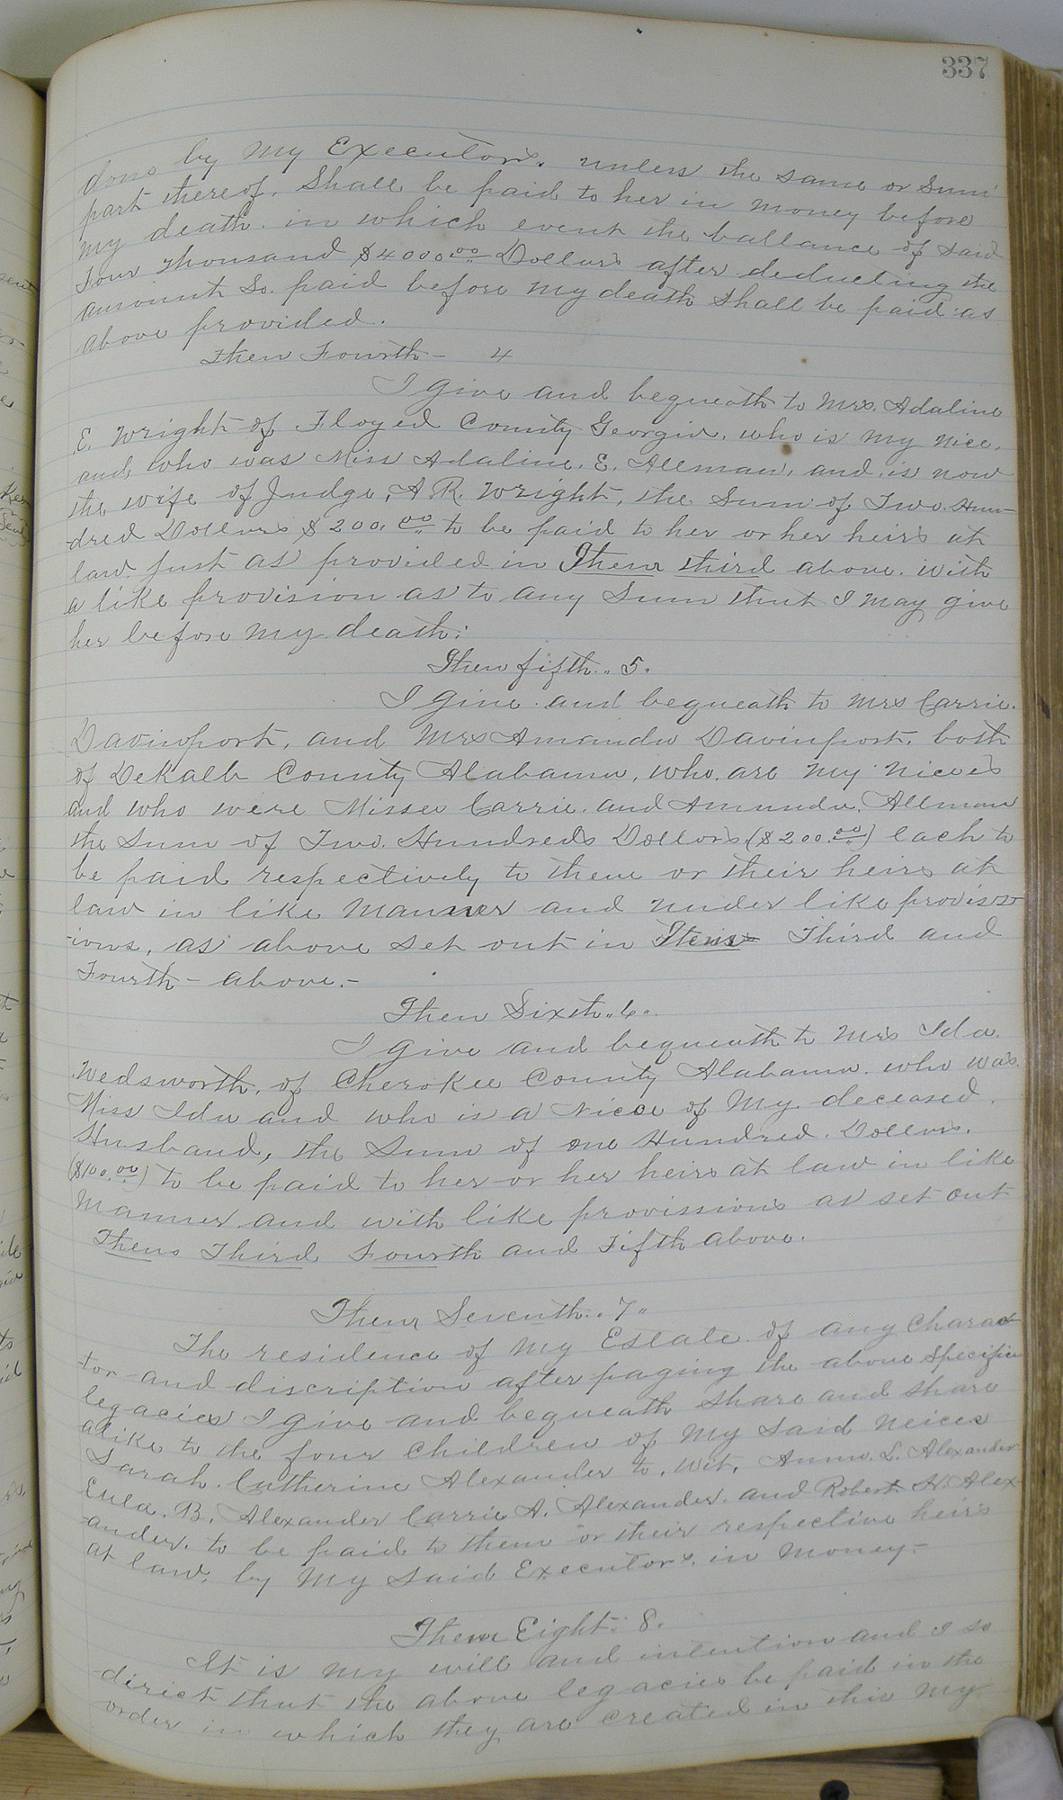 337
done by my Executors. unless the same or Sum
part thereof. Shall be paid to her in money before
my death. in which event the ballance of said
Four Thousand $4000.00 Dollars after deducting the
amount So. paid before my death Shall be paid as
above provided.
Item Fourth - 4
I give and bequeath to Mrs. Adaline
E. Wright of Floyed County Georgia. who is my nice.
and who was Miss Adaline. E. Allman. and is now
the wife of Judge, A. R. Wright, the Sum of Two. Hun-
dred Dollars $200.00 to be paid to her or her heirs at
law just as provided in Item third above. with
a like provision as to any Sum that I may give
her before my death:
Item fifth.. 5.
I give and bequeath to Mrs Carrie.
Davinport, and Mrs Amanda Davinport. both
of DeKalb County Alabama, who are my nieces
and who were Misses Carrie. and Amanda. Allman
the Sum of Two. Hundreds Dollars ($200.00) each to
be paid respectively to them or their heirs at
law in like manner and under like provis
-ions, as above set out in Items Third and
Fourth - above. -
Item Sixth.. 6..
I give and bequeath to Mrs Ida.
Wedsworth, of Cherokee County Alabama. who was
Miss Ida and who is a Niece of my deceased.
Husband, the Sum of one Hundred. Dollars.
($100.00) to be paid to her or her heirs at law in like
manner and with like provissions as set out
Items Third Fourth and Fifth above.
Item Seventh.. 7..
The residence of my Estate of any Charac
-tor and discription after paging the above specific
legacies I give and bequeath share and share
alike to the four children of my said neices
Sarah. Catherine Alexander to, wit, Anna. L. Alexander
Eula. B. Alexander Carrie A. Alexander. and Robert H. Alex-
-ander. to be paid to them or their respective heirs
at law, by my said Executors. in money.-
Item Eight. 8.
It is my will and intention and I so
-dirict that the above legacies be paid in the
order in which they are created in this my